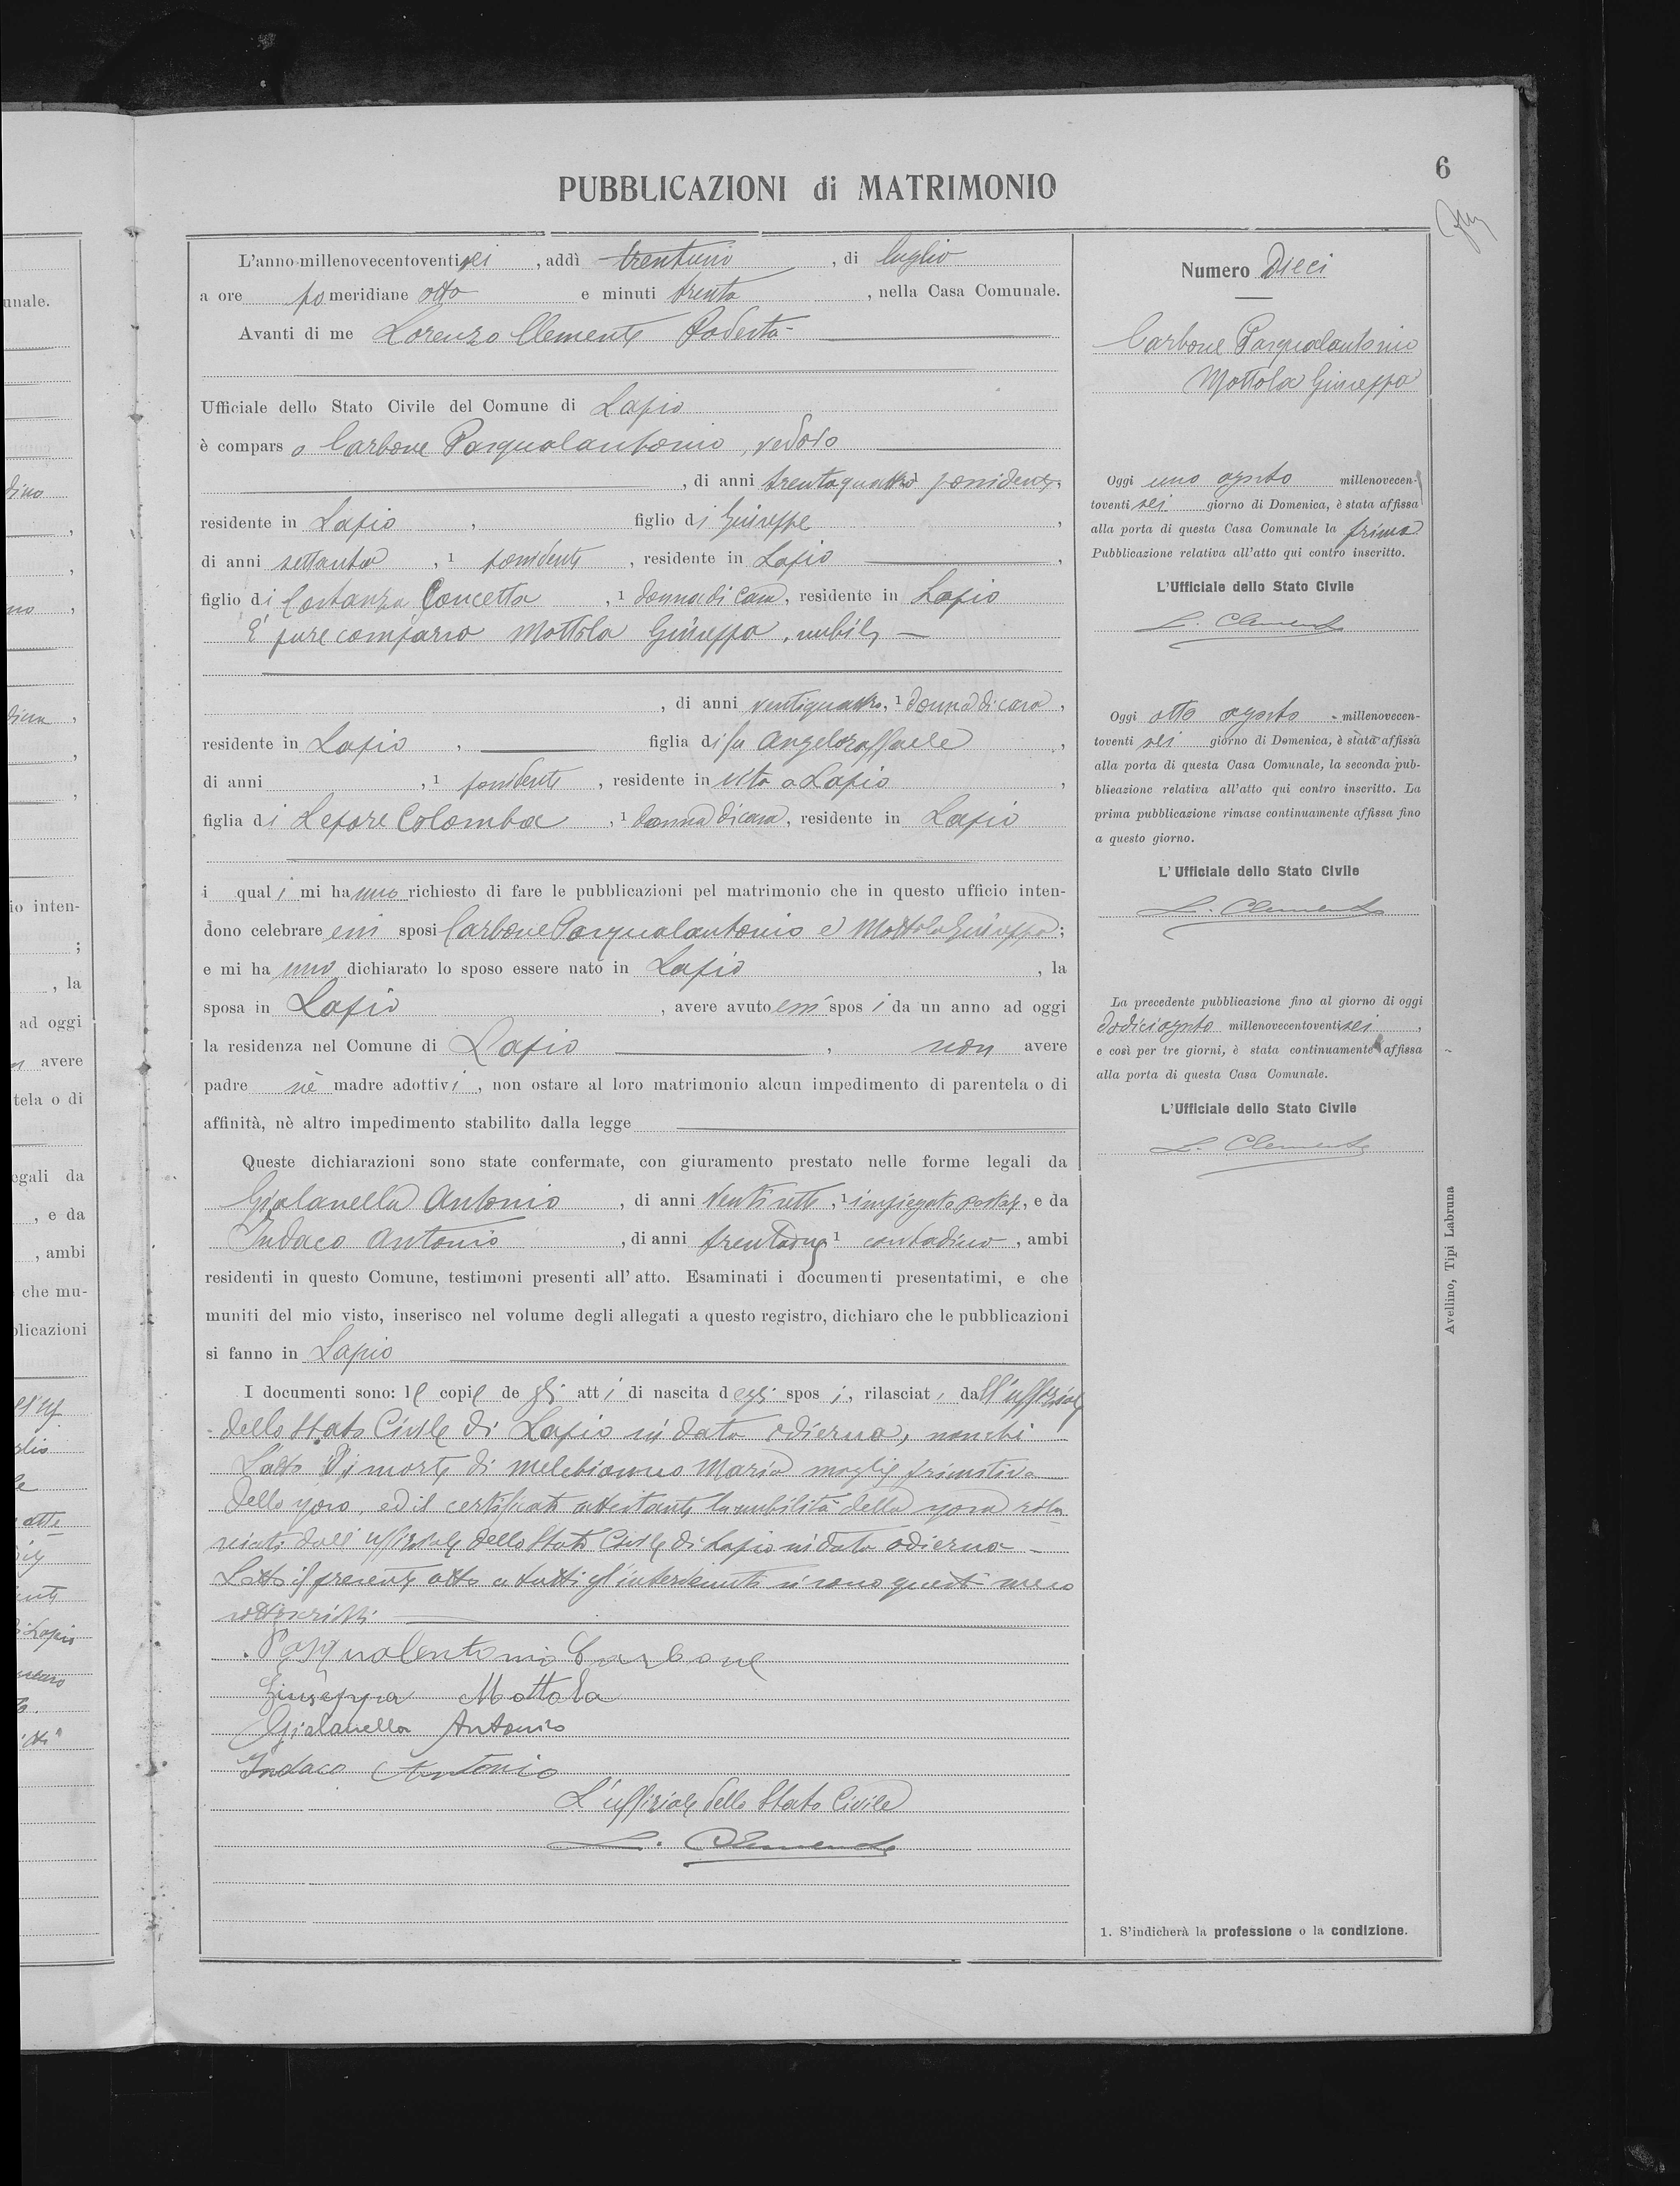 6
PUBBLICAZIONI di MATRIMONIO
L'anno millenovecentoventisei, addì trentuno, di luglio
a ore pomeridiane otto e minuti trenta, nella Casa Comunale.
Avanti di me Lorenzo Clemente Podestà
Ufficiale dello Stato Civile del Comune di Lapio
è comparso Carbone Pasqualantonio, vedovo
, di anni trentaquattro possidente,
residente in Lapio, figlio di Giuseppe,
di anni settanta, 1 possidente, residente in Lapio,
figlio di Costanza Concetta, 1 donna di casa, residente in Lapio
È pure comparso Mottola Giuseppa, nubile
, di anni ventiquattro, 1 donna di casa,
residente in Lapio, figlia di fu Angeloraffaele,
di anni , 1 possidente, residente in vita a Lapio,
figlia di Lepore Colomba, 1 donna di casa, residente in Lapio
i quali mi hanno richiesto di fare le pubblicazioni pel matrimonio che in questo ufficio inten-
dono celebrare essi sposi Carbone Pasqualantonio e Mottola Giuseppa;
e mi hanno dichiarato lo sposo essere nato in Lapio, la
sposa in Lapio, avere avuto essi sposi da un anno ad oggi
la residenza nel Comune di Lapio, non avere
padre nè madre adottivi, non ostare al loro matrimonio alcun impedimento di parentela o di
affinità, nè altro impedimento stabilito dalla legge
Queste dichiarazioni sono state confermate, con giuramento prestato nelle forme legali da
Gialanella Antonio, di anni ventisette, 1 impiegato postale, e da
Indaco Antonio, di anni trentadue 1 contadino, ambi
residenti in questo Comune, testimoni presenti all'atto. Esaminati i documenti presentatimi, e che
muniti del mio visto, inserisco nel volume degli allegati a questo registro, dichiaro che le pubblicazioni
si fanno in Lapio
I documenti sono: le copie degli atti di nascita degli sposi, rilasciati dall'uffiziale
dello Stato Civile di Lapio in data odierna, nonchi
l'atto di morte di Melchionno Maria moglie primitiva
dello sposo, ed il certificato attestante la nubilità della sposa rila
sciati dall'uffiziale dello Stato Civile di Lapio in data odierna
Letto il presente atto a tutti gl'intervenuti si sono questi meco
sottoscritti
Pasqualentonio Carbone
Giuseppa Mottola
Gialanella Antonio
Indaco Antonio
L'uffiziale dello Stato Civile
L. Clemente
Numero Dieci
Carbone Pasqualantonio
Mottola Giuseppa
Oggi uno agosto millenovecen-
toventisei giorno di Domenica, è stata affissa
alla porta di questa Casa Comunale la prima
Pubblicazione relativa all'atto qui contro inscritto.
L'Ufficiale dello Stato Civile
L. Clemente
Oggi otto agosto millenovecen-
toventisei giorno di Domenica, è stata affissa
alla porta di questa Casa Comunale, la seconda pub-
blicazione relativa all'atto qui contro inscritto. La
prima pubblicazione rimase continuamente affissa fino
a questo giorno.
L'Ufficiale dello Stato Civile
L. Clemente
La precedente pubblicazione fino al giorno di oggi
dodici agosto millenovecentoventisei,
e così per tre giorni, è stata continuamente affissa
alla porta di questa Casa Comunale.
L'Ufficiale dello Stato Civile
L. Clemente
1. S'indicherà la professione o la condizione.
Avellino, Tipi Labruna